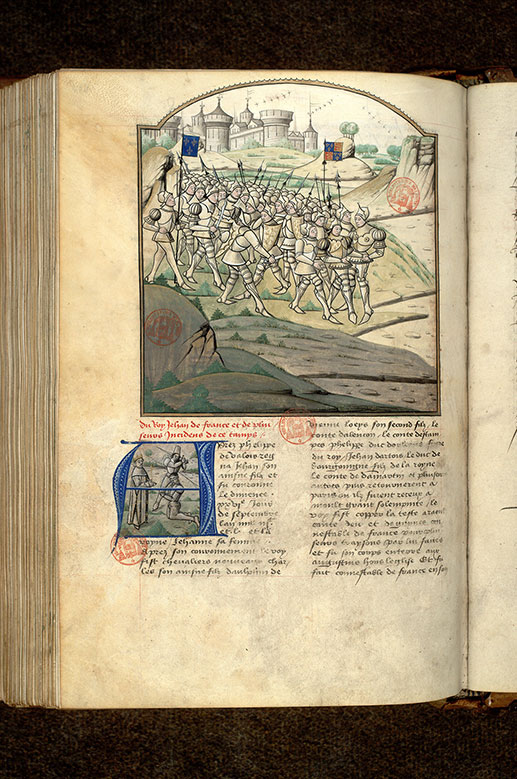 Du Roy Jehan de france et de plui
seurs Incidens de ce temps
Aprez phelipe
de valois reg
na Jehan son
ainsne filz et
fu couronne
le dimence
jour
de septembre
lan mil
et la
royne Jehanne sa femme
Aprez son couronnement le roy
fist chevaliers nouveaux char
les son ainsne filz daulphin de
vienne loeys son second filz le
conte dalencon le conte destam
pes phelipe duc dorleans
du roy Jehan dartois le duc de
bourgoingne filz de la royne
le conte de dammartin et pluiseurs
autres puis retournerent a
paris ou ilz furent receus a
moult grant solempnite le
roy fist copper la teste a
conte deu et de guines con
nestable de france pour plui
seurs traysons par lui faites
et fu son corps enterre aux
augustins hors leglise Et fu
fait connestable de france en son